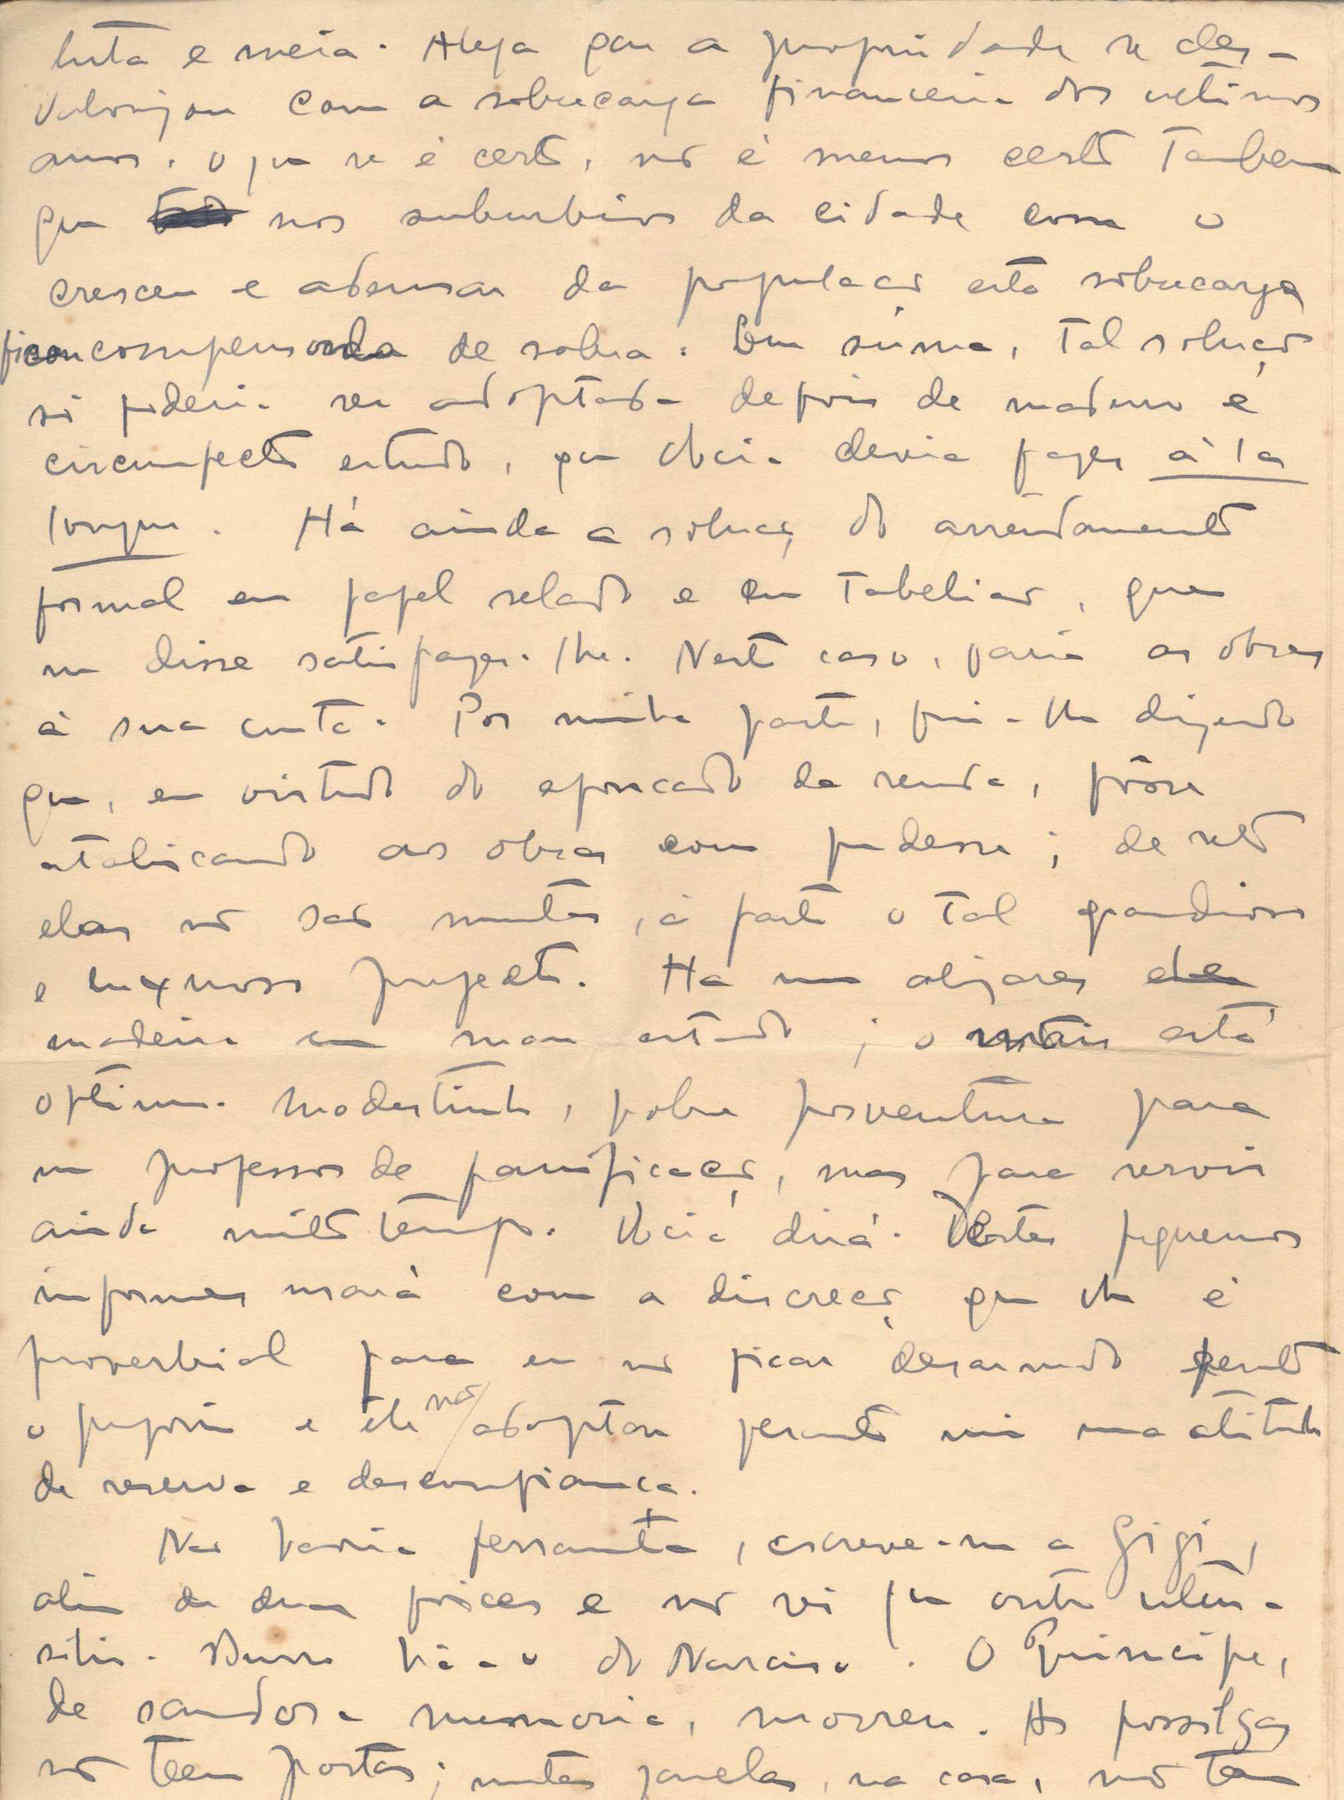 e meia. Alega que a propriedade se des-
valorizou com a sobrecarga financeira dos ultimos
anos. O que se é certo, não é menos certo tambem
que nos suburbios da cidade com o
crescer e adensar da população esta sobrecarga
ficou compensada de sobra. Em súma, tal solução
só poderia ser adoptada depois de maduro e
circumspecto estudo, que Você devia fazer à la
longue. Há ainda a solução do arrendamento
formal em papel selado e em tabelião, que
me disse satisfazer-lhe. Neste caso, faria as obras
à sua custa. Por minha parte, fui-lhe dizendo
que, em virtude do apoucado da renda, fôsse
atabicando as obras como pudesse; de resto
elas não são muitas, á parte o tal grandioso
e luxuoso projecto. Ha uns alizares de
madeira em mau estado; o mais está
optimo. Modestinho, pobre porventura para
um professor de panificação, mas para servir
ainda muito tempo. Você dirá. Destes pequenos
informes usará com a discreção que lhe é
proverbial para eu não ficar desarmado perante
o proprio e êle não adoptar perante mim uma atitude
de reserva e desconfiança.
Não havia ferramenta, escreve-me a Gigi,
alem de duas foices e não sei que outro uten-
silio. Burro há-o do Narciso. O Principe,
de saudosa memoria, morreu. As possilgas
não teem portas; muitas janelas, na casa, não tem